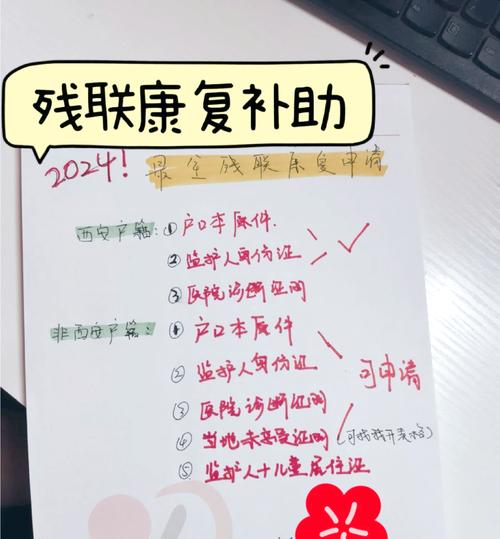 残联康复补助
2024! 最全残联康复申请
西安户籍:①户口本原件
②监护人身份证
③医院诊断证明
非西安户籍:①户口本原件
②监护人身份证
③医院诊断证明
可申请
④当地未享受证明(可找我开表格)
⑤监护人+儿童居住证